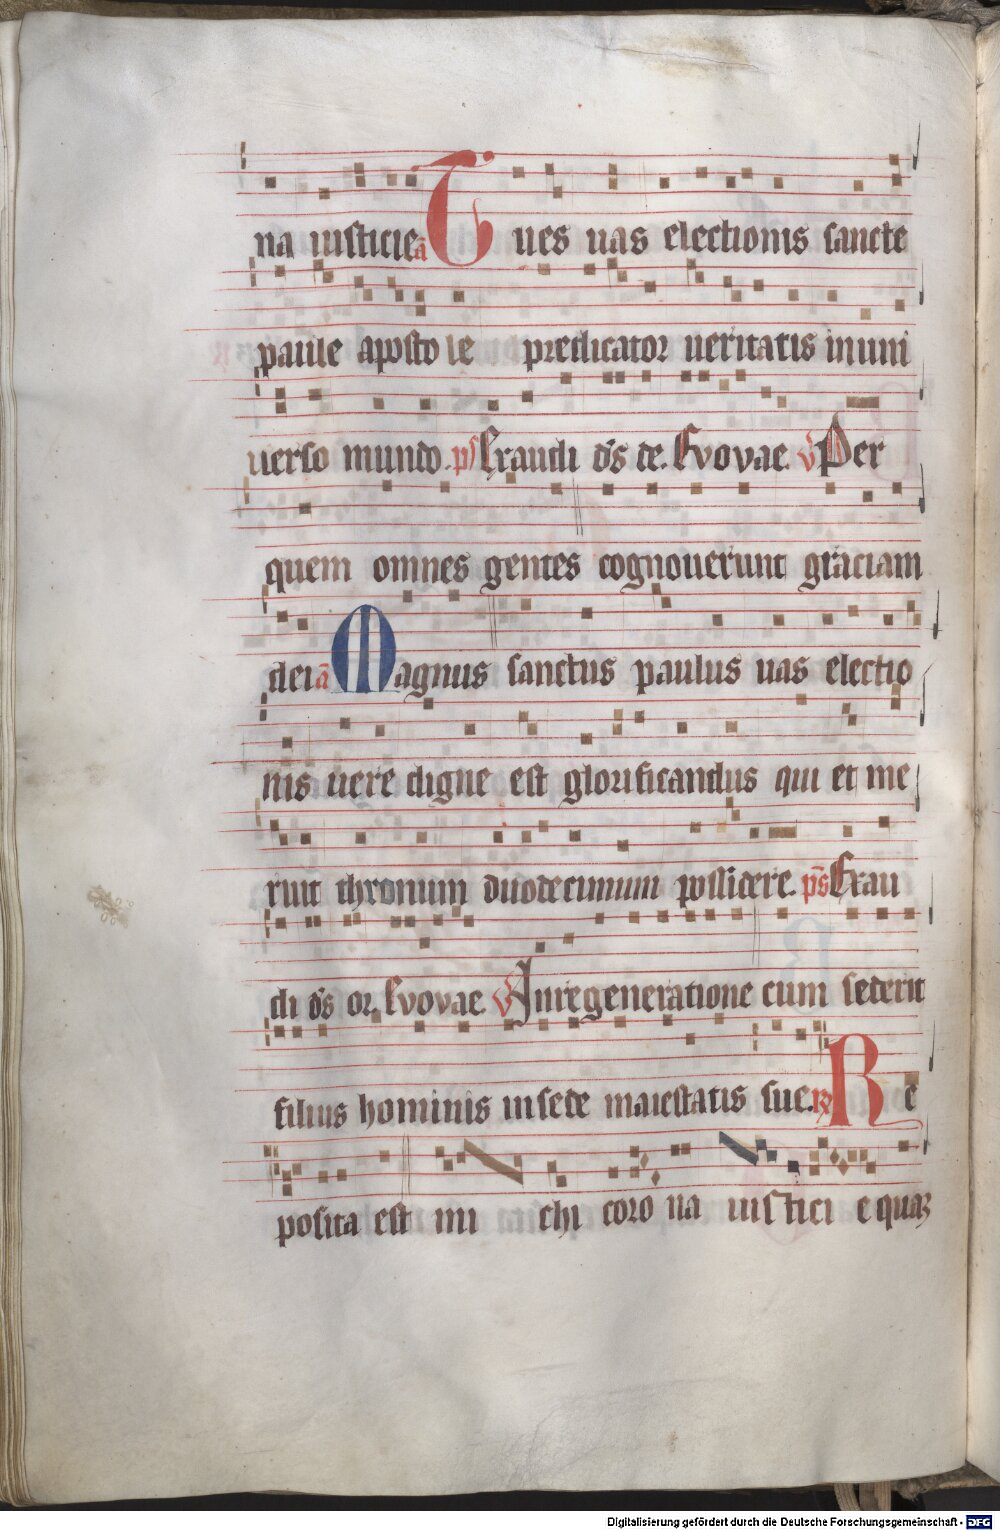 na iusticie ā Tu es uas electionis sancte
paule apostole predicator ueritatis in uni
uerso mundo. ps Exaudi ds de. Evovae. v Per
quem omnes gentes cognouerunt graciam
dei ā Magnus sanctus paulus uas electio
nis uere digne est glorificandus qui et me
ruit thronum duodecimum possidere. ps Exau
di ds or. Evovae v In regeneratione cum sederit
filius hominis in sede maiestatis sue. R Re
posita est mi chi coro na iusticie quaʒ
Digitalisierung gefördert durch die Deutsche Forschungsgemeinschaft - DFG